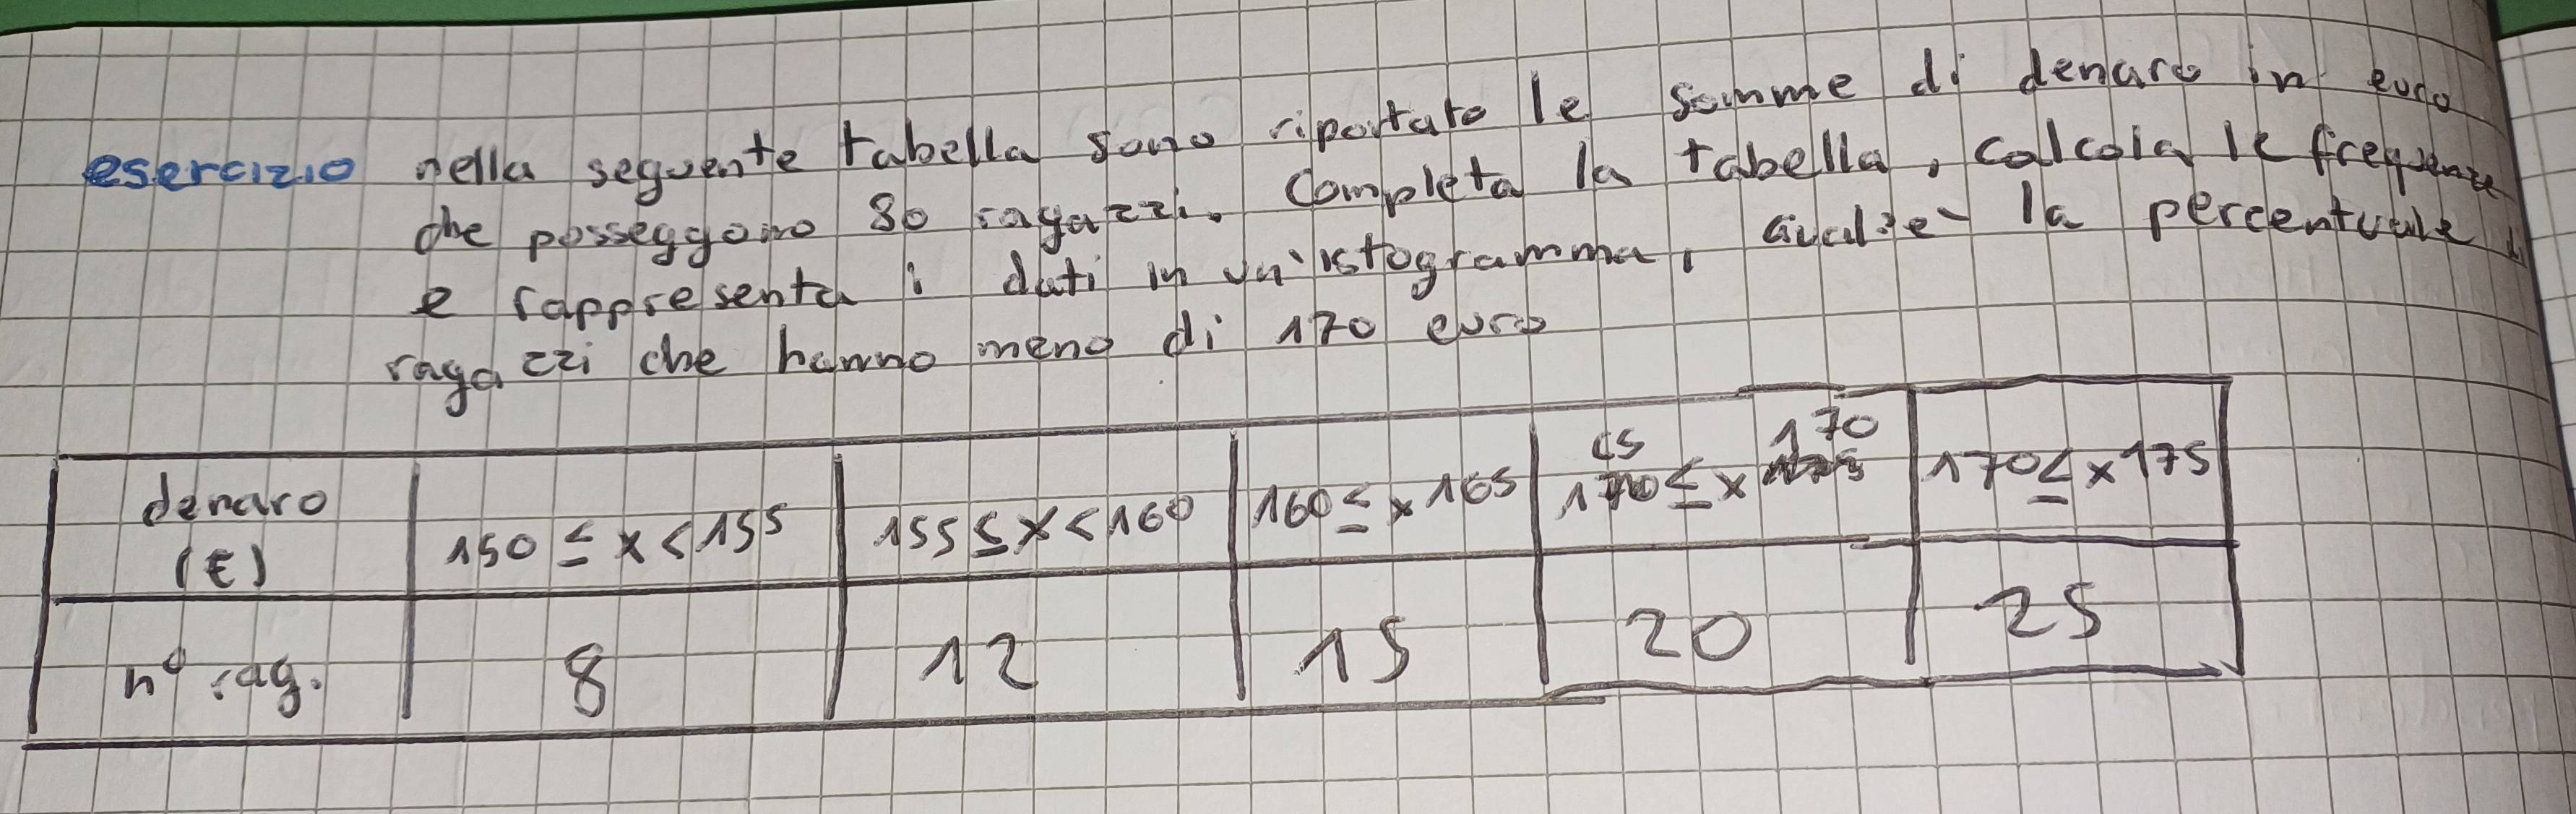 esercizio nella seguente tabella sono riportato le somme di denaro in euro
che posseggono 80 ragazzi. Completa la tabella, calcola le frequenze
e rappresenta i dati in un'istogramma, qual'e' la percentuale di
ragazzi che hanno meno di 170 euro
denaro (€) 150 ≤ x < 155 155 ≤ x < 160 160 ≤ x 165 165 ≤ x 170 170 ≤ x 175
n° rag. 8 12 15 20 25